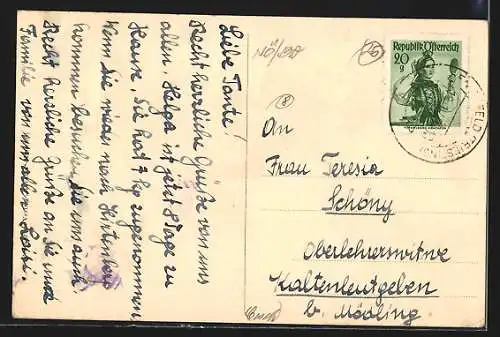 Liebe Tante!
Recht herzliche Grüße von uns
allen. Helga ist jetzt 8 Tage zu
Hause, Sie hat 7 kg zugenommen
Wenn Sie wieder nach Hirtenberg
kommen besuchen Sie uns auch.
Recht herzliche Grüße an Sie und
Familie von uns allen Loisi.
NÖ/
8
Republik Österreich
20
g
An
Frau Teresia
Schöny
Oberlehrerswitwe
Kaltenleutgeben
b. Mödling